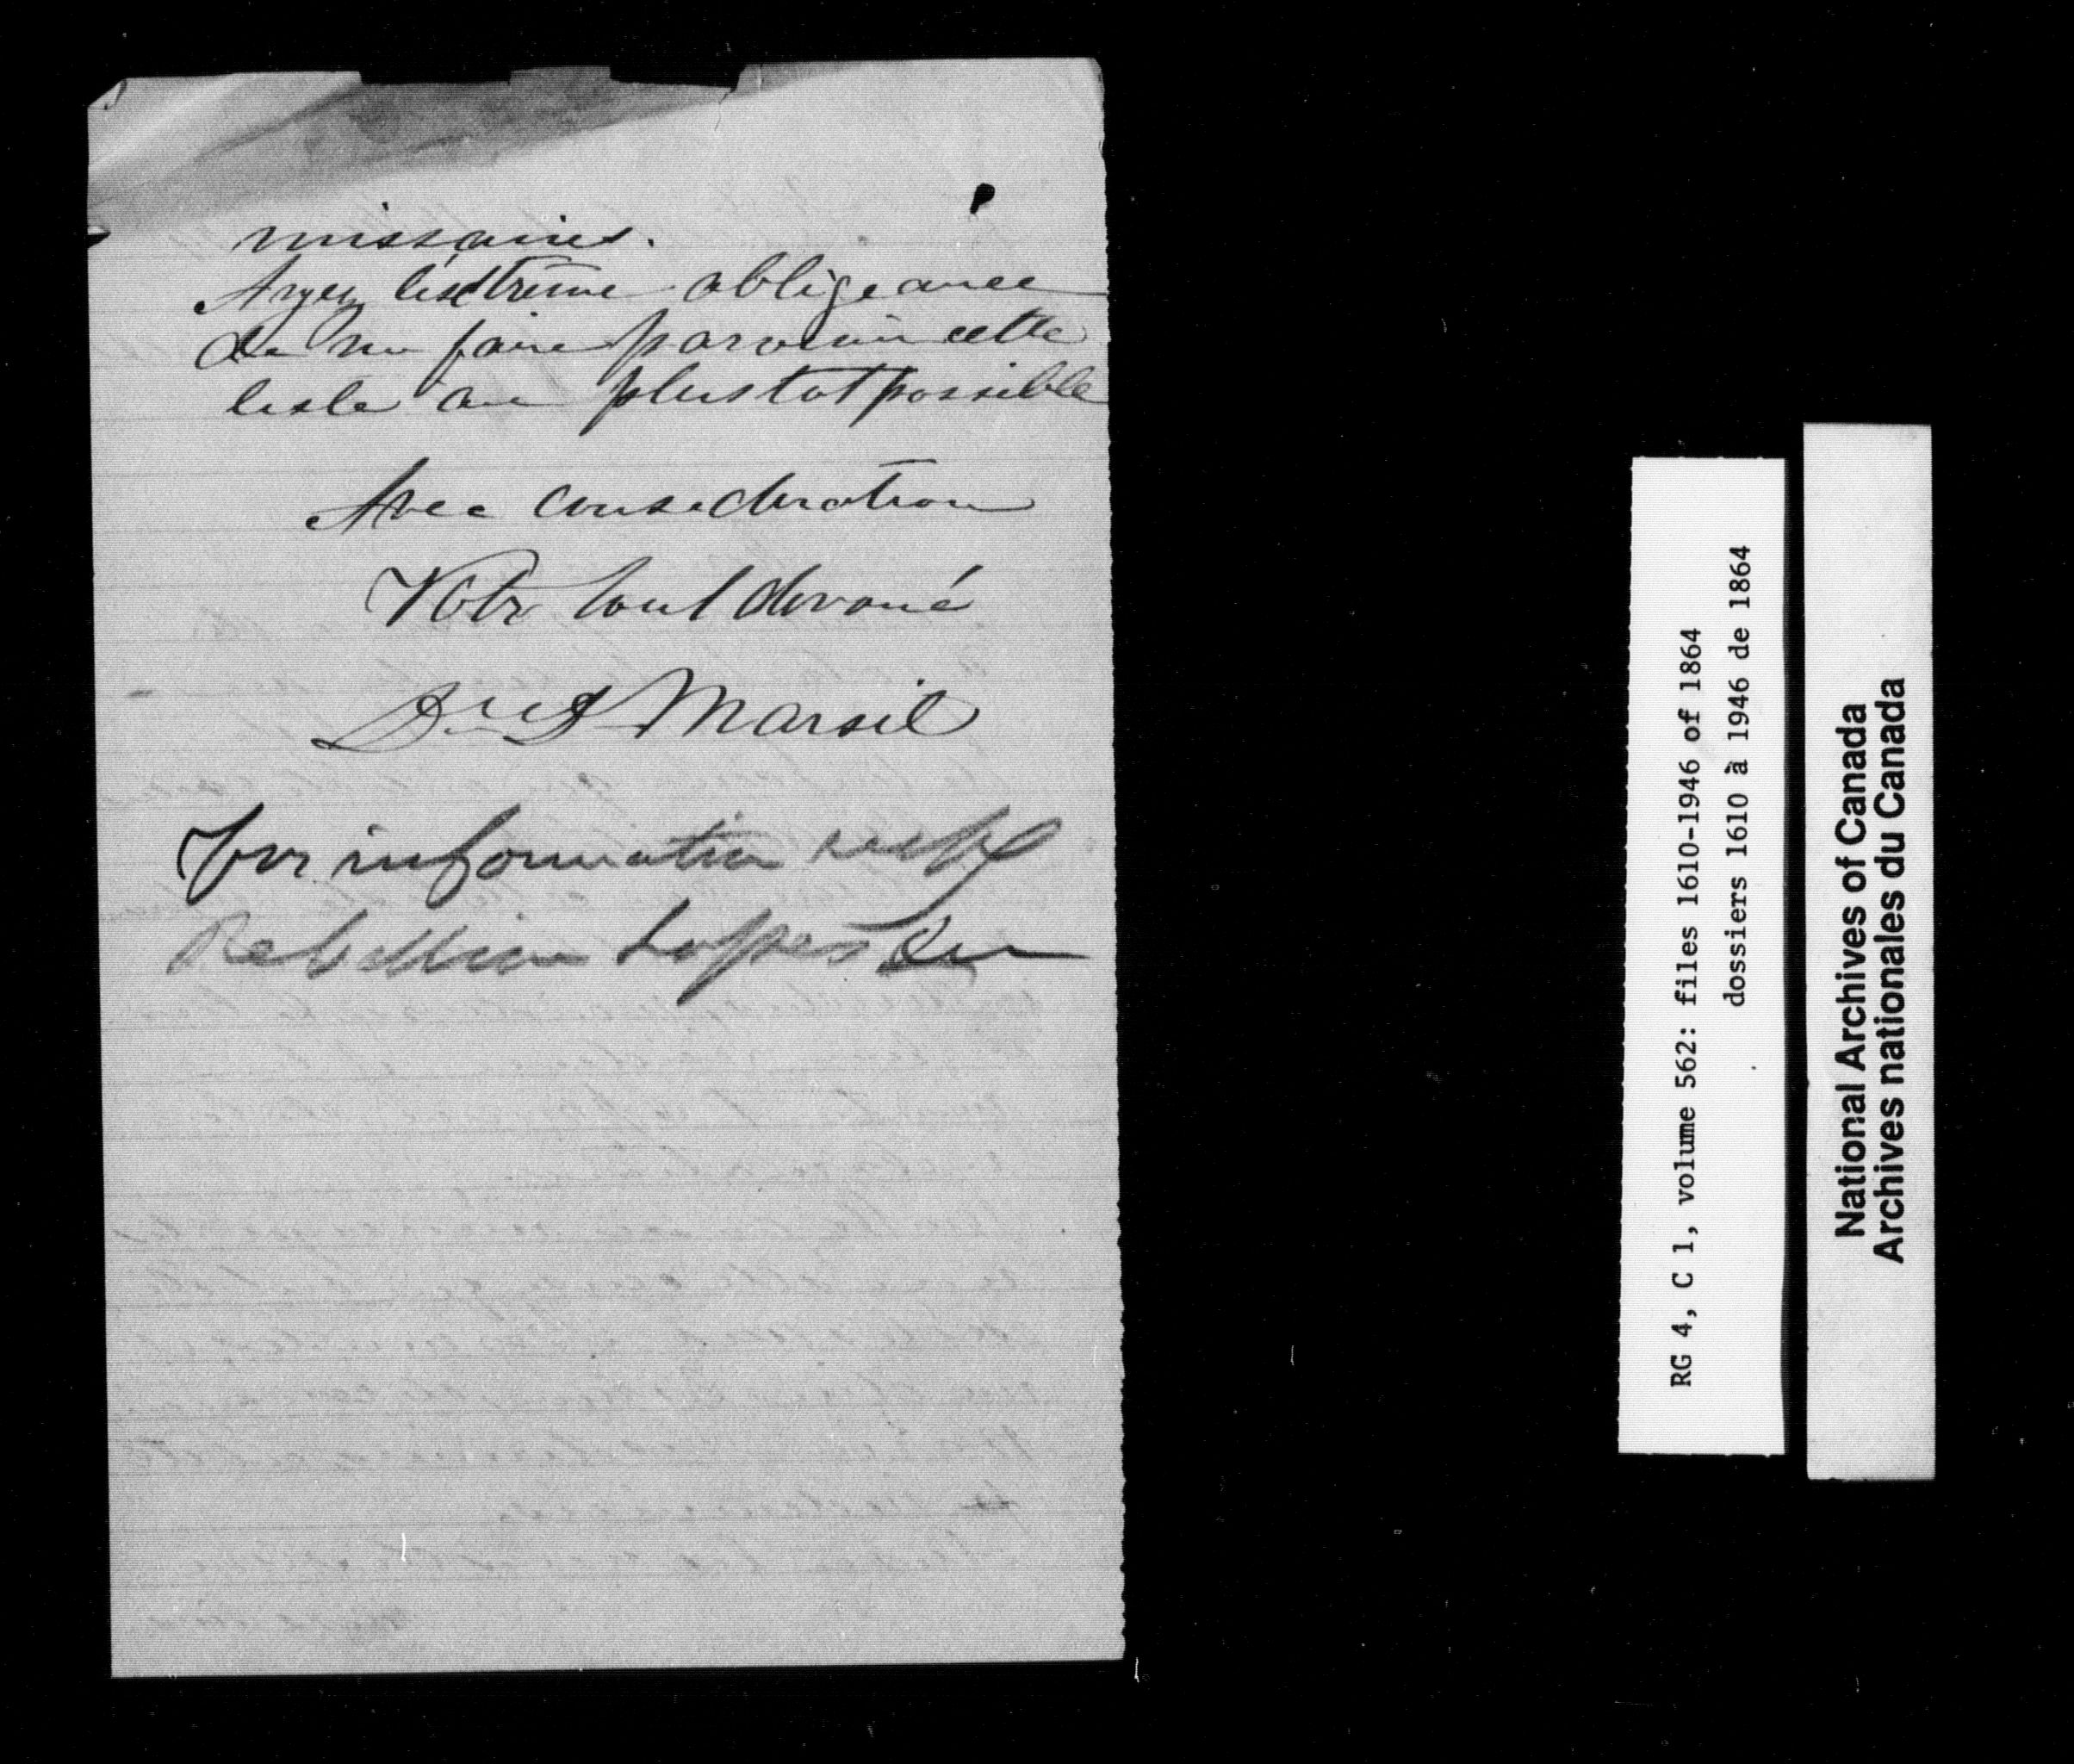 missaires.
Ayez l'extrême obligeance
de me faire parvenir cette
liste au plus tot possible
Avec consideration
Votre tout dévoué
Dr D Marsil
For information resp
Rebellion Losses
RG 4, C 1, volume 562: files 1610-1946 of 1864
dossiers 1610 à 1946 de 1864
National Archives of Canada
Archives nationales du Canada